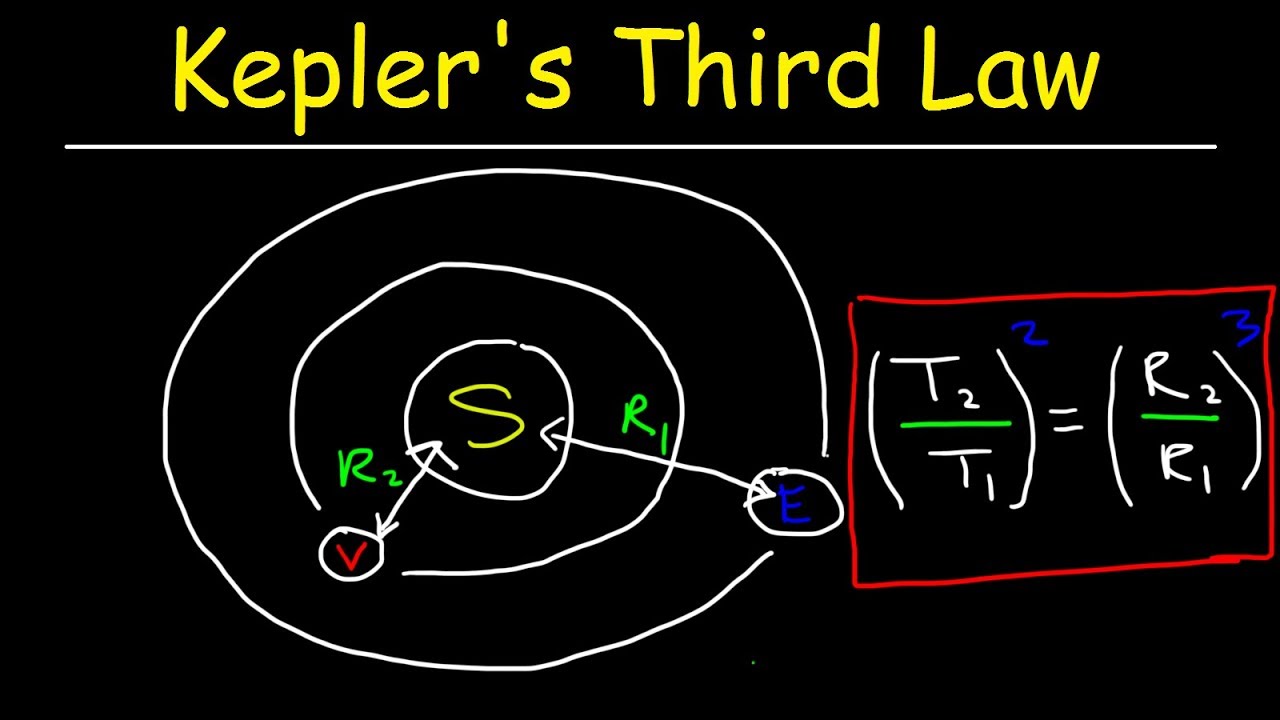 Kepler's Third Law
S
R₁
R₂
E
V
(T₂/T₁)² = (R₂/R₁)³